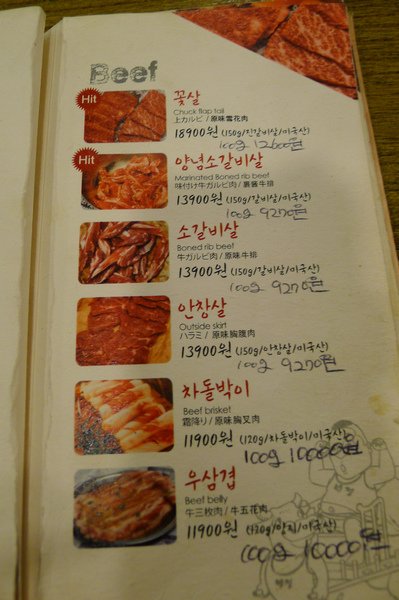 Beef
Hit
꽃살
Chuck flap tail
上カルビ / 原味雪花肉
18900원 (150g/진갈비살/미국산)
100g 12600원
Hit
양념소갈비살
Marinated Boned rib beef
味付け牛ガルビ肉 / 裹酱牛排
13900원 (150g/갈비살/미국산)
100g 9270원
소갈비살
Boned rib beef
牛ガルビ肉 / 原味牛排
13900원 (150g/갈비살/미국산)
100g 9270원
안창살
Outside skirt
ハラミ / 原味胸腹肉
13900원 (150g/안창살/미국산)
100g 9270원
차돌박이
Beef brisket
霜降り / 原味胸叉肉
11900원 (120g/차돌박이/미국산)
100g 10000원
우삼겹
Beef belly
牛三枚肉 / 牛五花肉
11900원 (120g/양지/미국산)
100g 10000원